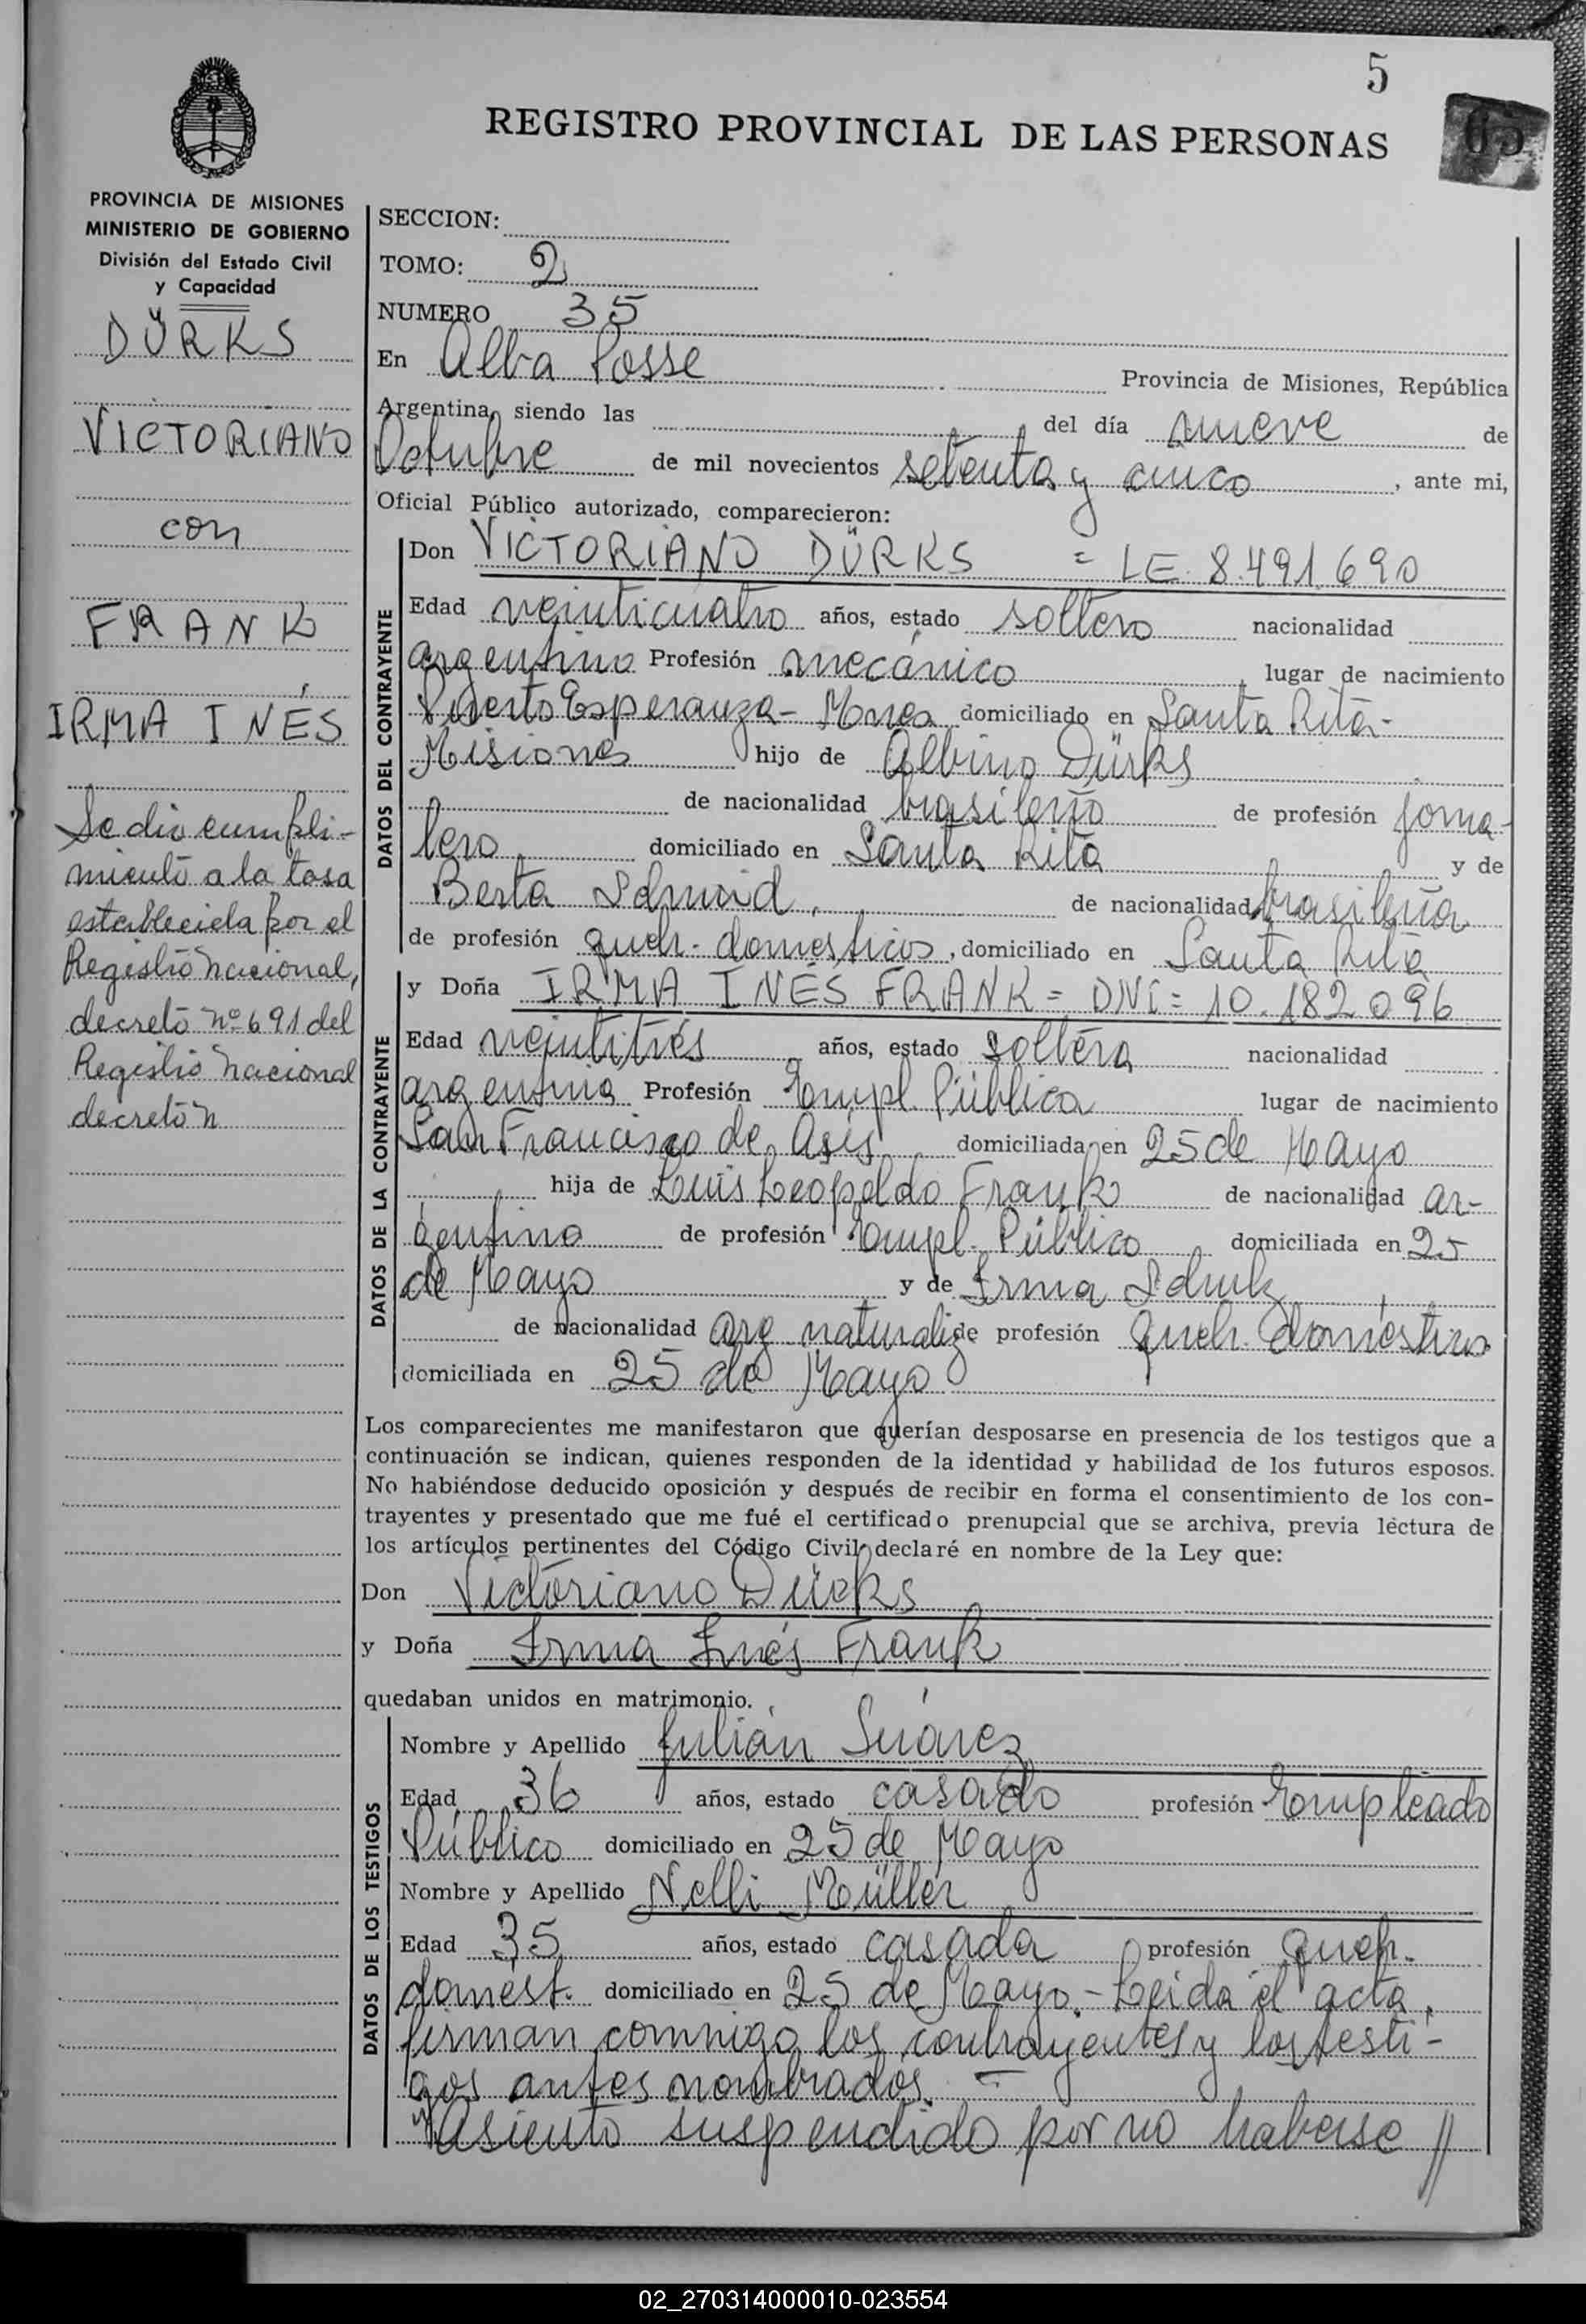 5
65
REGISTRO PROVINCIAL DE LAS PERSONAS
PROVINCIA DE MISIONES
MINISTERIO DE GOBIERNO
División del Estado Civil
y Capacidad
DÜRKS
VICTORIANO
con
FRANK
IRMA INÉS
Se dio cumpli-
miento a la tasa
establecida por el
Registro Nacional,
decreto nº 691 del
Registro Nacional
decreto n
SECCION:
TOMO: 2
NUMERO 35
En Alba Posse Provincia de Misiones, República
Argentina, siendo las del día nueve de
Octubre de mil novecientos setenta y cinco, ante mi,
Oficial Público autorizado, comparecieron:
DATOS DEL CONTRAYENTE
Don VICTORIANO DÜRKS = LE. 8.491.690
Edad veinticuatro años, estado soltero nacionalidad
argentino Profesión mecánico lugar de nacimiento
Puerto Esperanza - Mnes domiciliado en Santa Rita -
Misiones hijo de Albino Dürks
de nacionalidad brasileño de profesión jorna-
lero domiciliado en Santa Rita y de
Berta Schmid, de nacionalidad brasileña
de profesión queh. domésticos, domiciliado en Santa Rita
DATOS DE LA CONTRAYENTE
y Doña IRMA INÉS FRANK = DNI = 10.182.096
Edad veintitrés años, estado soltera nacionalidad
argentina Profesión Empl. Pública lugar de nacimiento
San Francisco de Asís domiciliada en 25 de Mayo
hija de Luis Leopoldo Frank de nacionalidad ar-
gentino de profesión Empl. Público domiciliada en 25
de Mayo y de Irma
de nacionalidad arg naturaliz de profesión queh. domésticos
domiciliada en 25 de Mayo
Los comparecientes me manifestaron que querían desposarse en presencia de los testigos que a
continuación se indican, quienes responden de la identidad y habilidad de los futuros esposos.
No habiéndose deducido oposición y después de recibir en forma el consentimiento de los con-
trayentes y presentado que me fué el certificado prenupcial que se archiva, previa léctura de
los artículos pertinentes del Código Civil, declaré en nombre de la Ley que:
Don Victoriano Dürks
y Doña Irma Inés Frank
quedaban unidos en matrimonio.
DATOS DE LOS TESTIGOS
Nombre y Apellido Julián Suárez
Edad 36 años, estado casado profesión Empleado
Público domiciliado en 25 de Mayo
Nombre y Apellido Nelli Müller
Edad 35 años, estado casada profesión queh.
domést. domiciliado en 25 de Mayo.- Leida el acta,
firman conmigo los contrayentes y los testi-
gos antes nombrados. -
Asiento suspendido por no haberse //
02_270314000010-023554